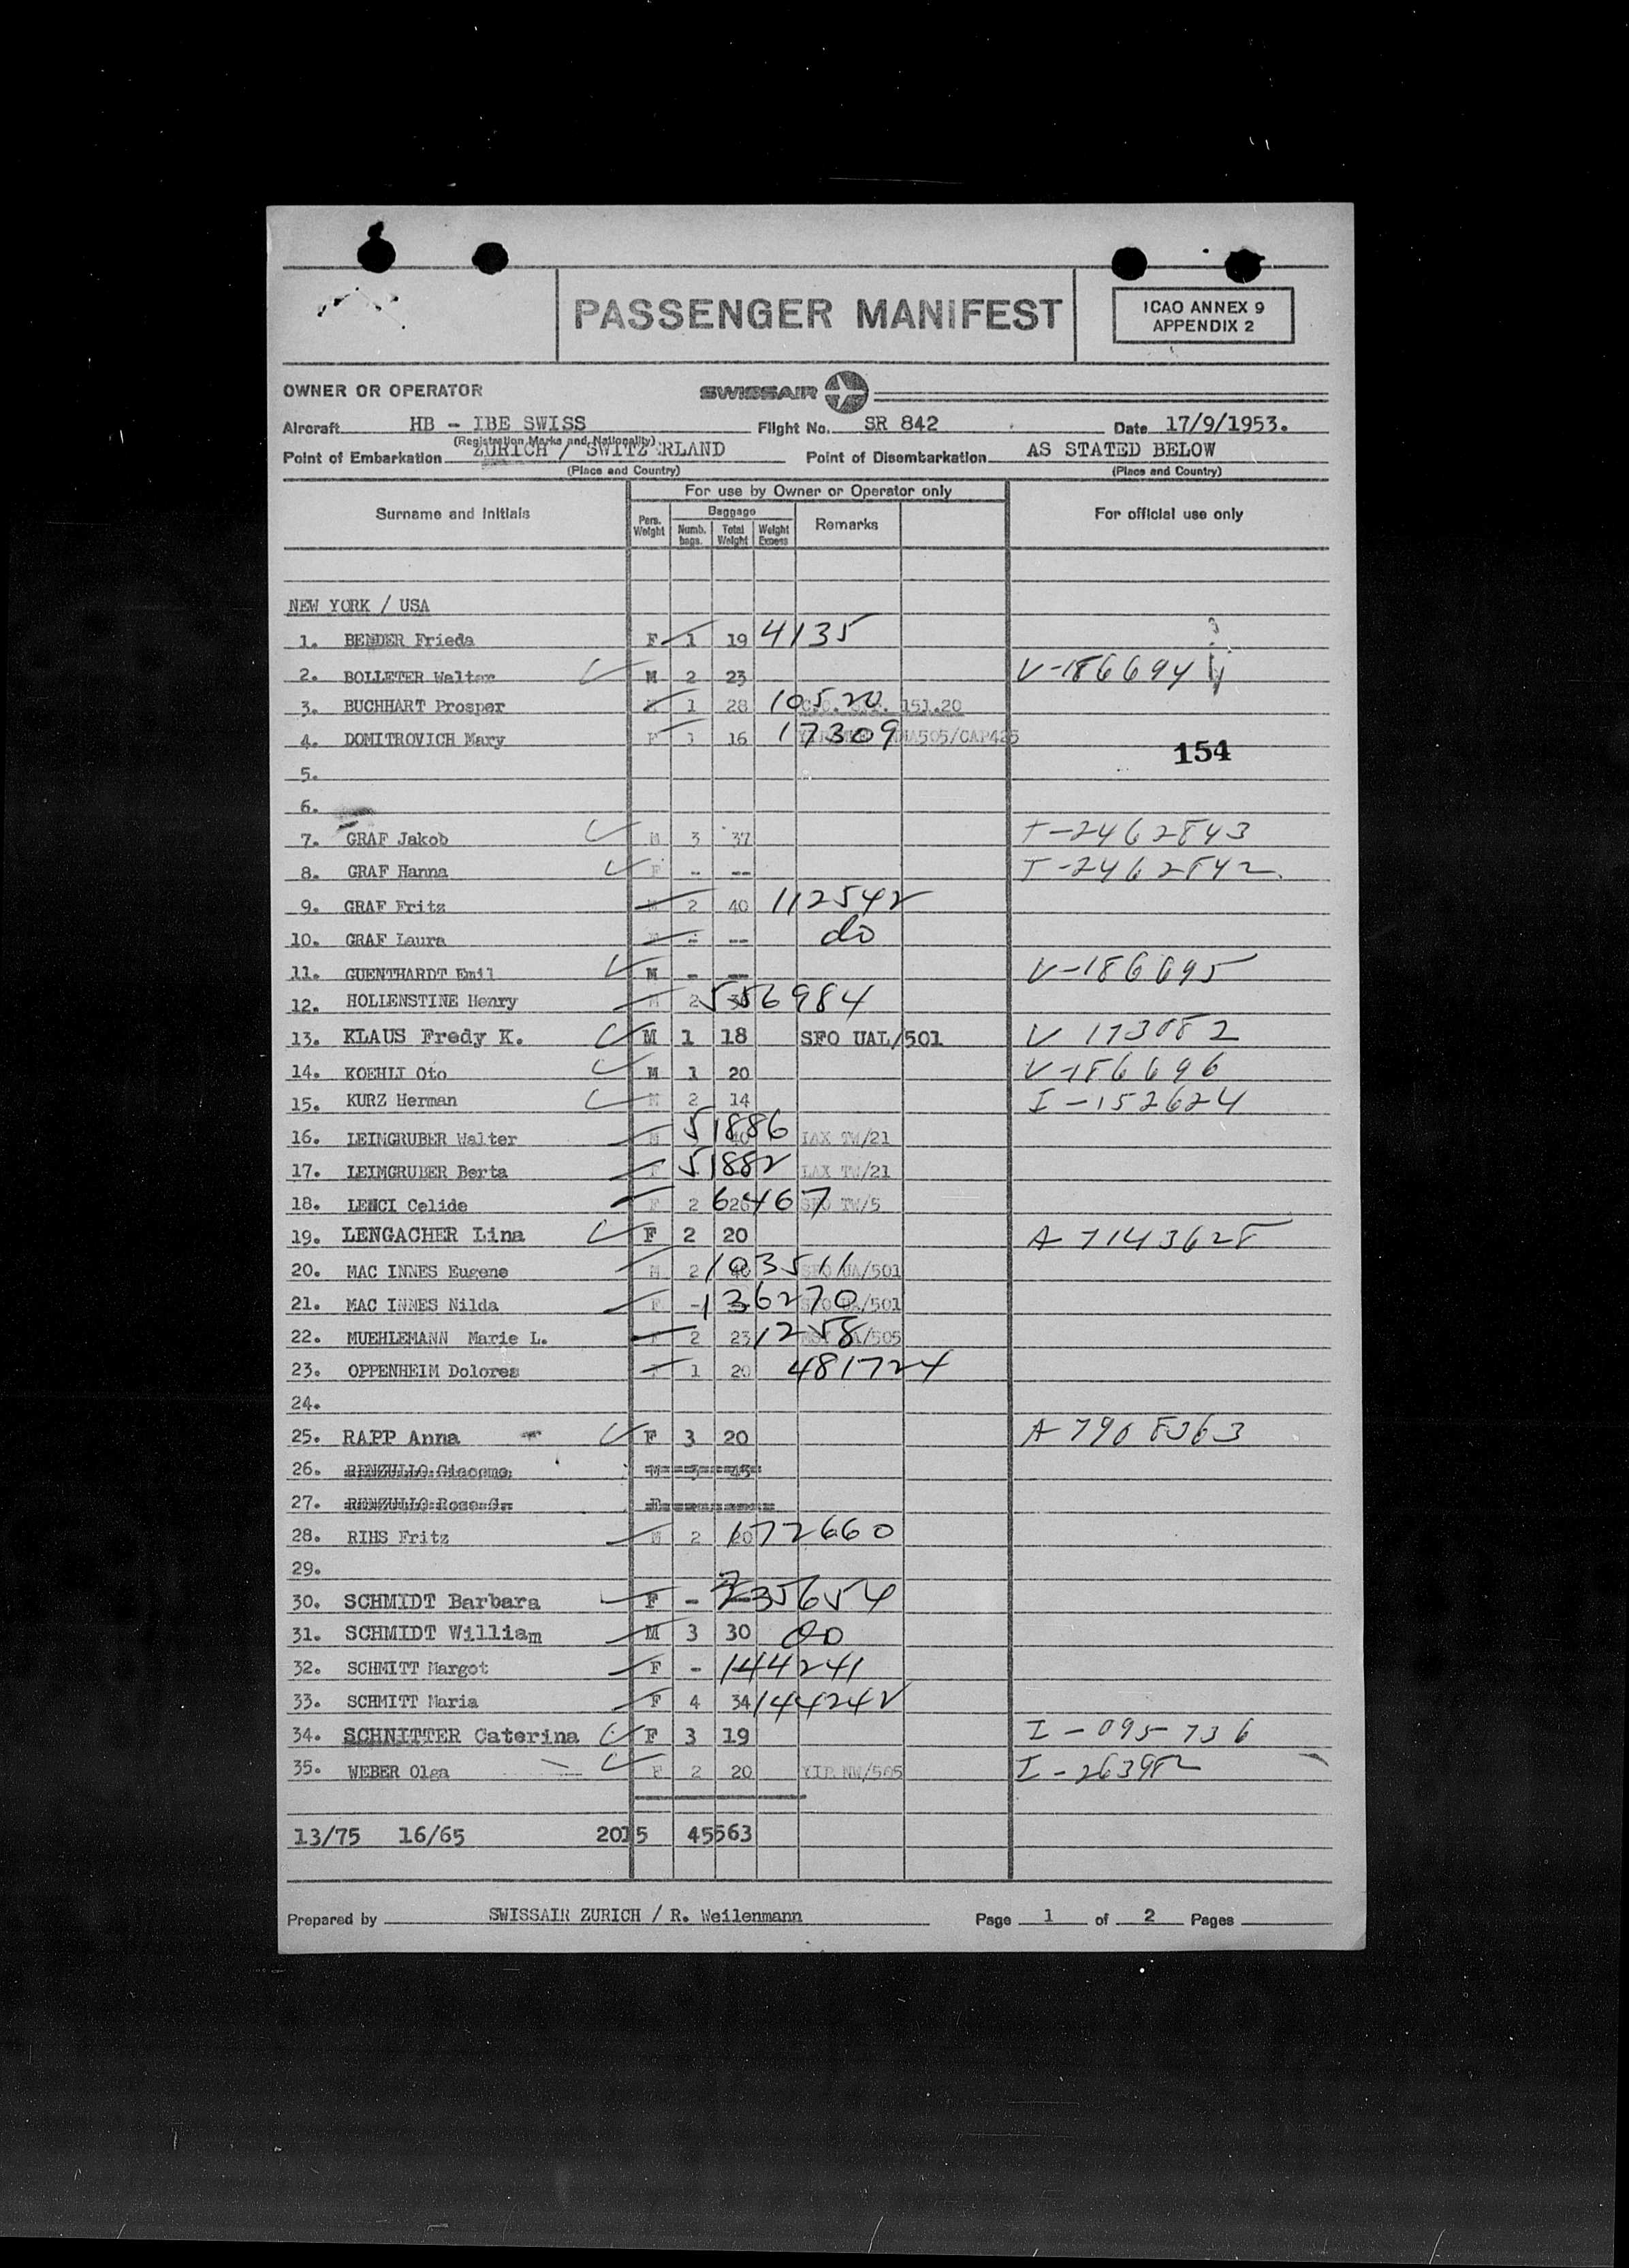 PASSENGER MANIFEST
ICAO ANNEX 9
APPENDIX 2
OWNER OR OPERATOR SWISSAIR
Aircraft HB - IBE SWISS Flight No. SR 842 Date 17/9/1953.
(Registration Marks and Nationality)
Point of Embarkation ZURICH / SWITZERLAND Point of Disembarkation AS STATED BELOW
(Place and Country) (Place and Country)
For use by Owner or Operator only
Surname and Initials Pers. Weight Baggage Numb. bags. Total Weight Weight Excess Remarks For official use only
NEW YORK / USA
1. BENDER Frieda F 1 19 4135
2. BOLLETER Walter M 2 23 V-186694
3. BUCHHART Prosper 1 28 10520 151.20
4. DOMITROVICH Mary F 1 16 17309 505/CAP425
154
5.
6.
7. GRAF Jakob M 3 37 T-2462843
8. GRAF Hanna F - -- T-2462842
9. GRAF Fritz M 2 40 112542
10. GRAF Laura - -- do
11. GUENTHARDT Emil M - -- V-186695
12. HOLLENSTINE Henry M 2 556984
13. KLAUS Fredy K. M 1 18 SFO UAL/501 V 173082
14. KOEHLI Oto M 1 20 V-186696
15. KURZ Herman M 2 14 I-152624
16. LEIMGRUBER Walter M 51886 LAX TW/21
17. LEIMGRUBER Berta F 51882 LAX TW/21
18. LENCI Celide F 2 26 6467 SFO TW/5
19. LENGACHER Lina F 2 20 A 7143628
20. MAC INNES Eugene M 2 103511 SFO UA/501
21. MAC INNES Nilda F - 136270 SFO UA/501
22. MUEHLEMANN Marie L. F 2 23 1258 /505
23. OPPENHEIM Dolores 1 20 481724
24.
25. RAPP Anna F 3 20 A 7908363
26. RENZULLO Giacomo M
27. RENZULLO Rose F
28. RIHS Fritz M 2 20 172660
29.
30. SCHMIDT Barbara F - 235654
31. SCHMIDT William M 3 30 do
32. SCHMITT Margot F - 144241
33. SCHMITT Maria F 4 34 144242
34. SCHNITTER Caterina F 3 19 I-095736
35. WEBER Olga F 2 20 YIP NW/505 I-263982
13/75 16/65 2015 45563
Prepared by SWISSAIR ZURICH / R. Weilenmann Page 1 of 2 Pages